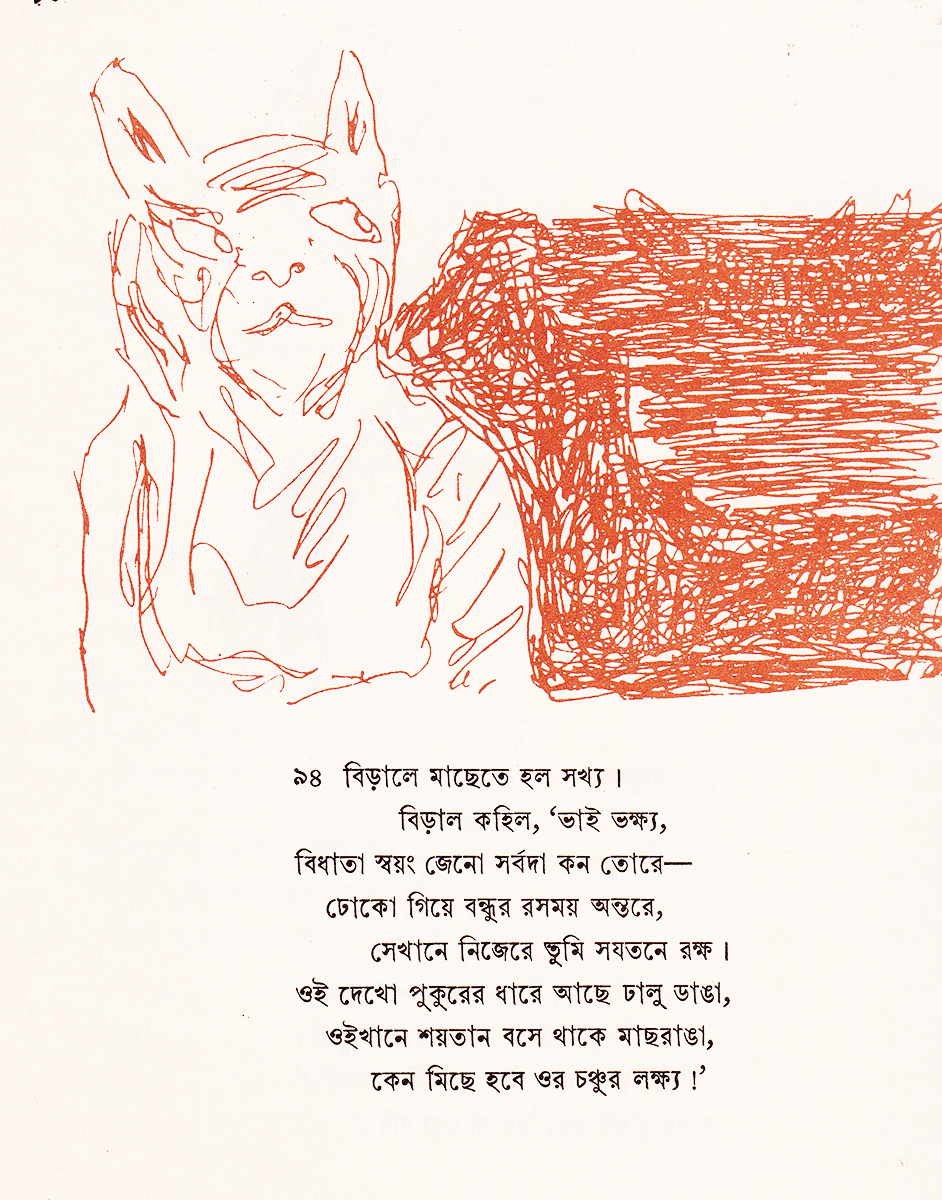 ৯৪ বিড়ালে মাছেতে হল সখ্য।
বিড়াল কহিল, ‘ভাই ভক্ষ্য,
বিধাতা স্বয়ং জেনো সর্বদা কন তোরে—
ঢোকো গিয়ে বন্ধুর রসময় অন্তরে,
সেখানে নিজেরে তুমি সযতনে রক্ষ।
ওই দেখো পুকুরের ধারে আছে ঢালু ডাঙা,
ওইখানে শয়তান বসে থাকে মাছরাঙা,
কেন মিছে হবে ওর চঞ্চুর লক্ষ্য!’